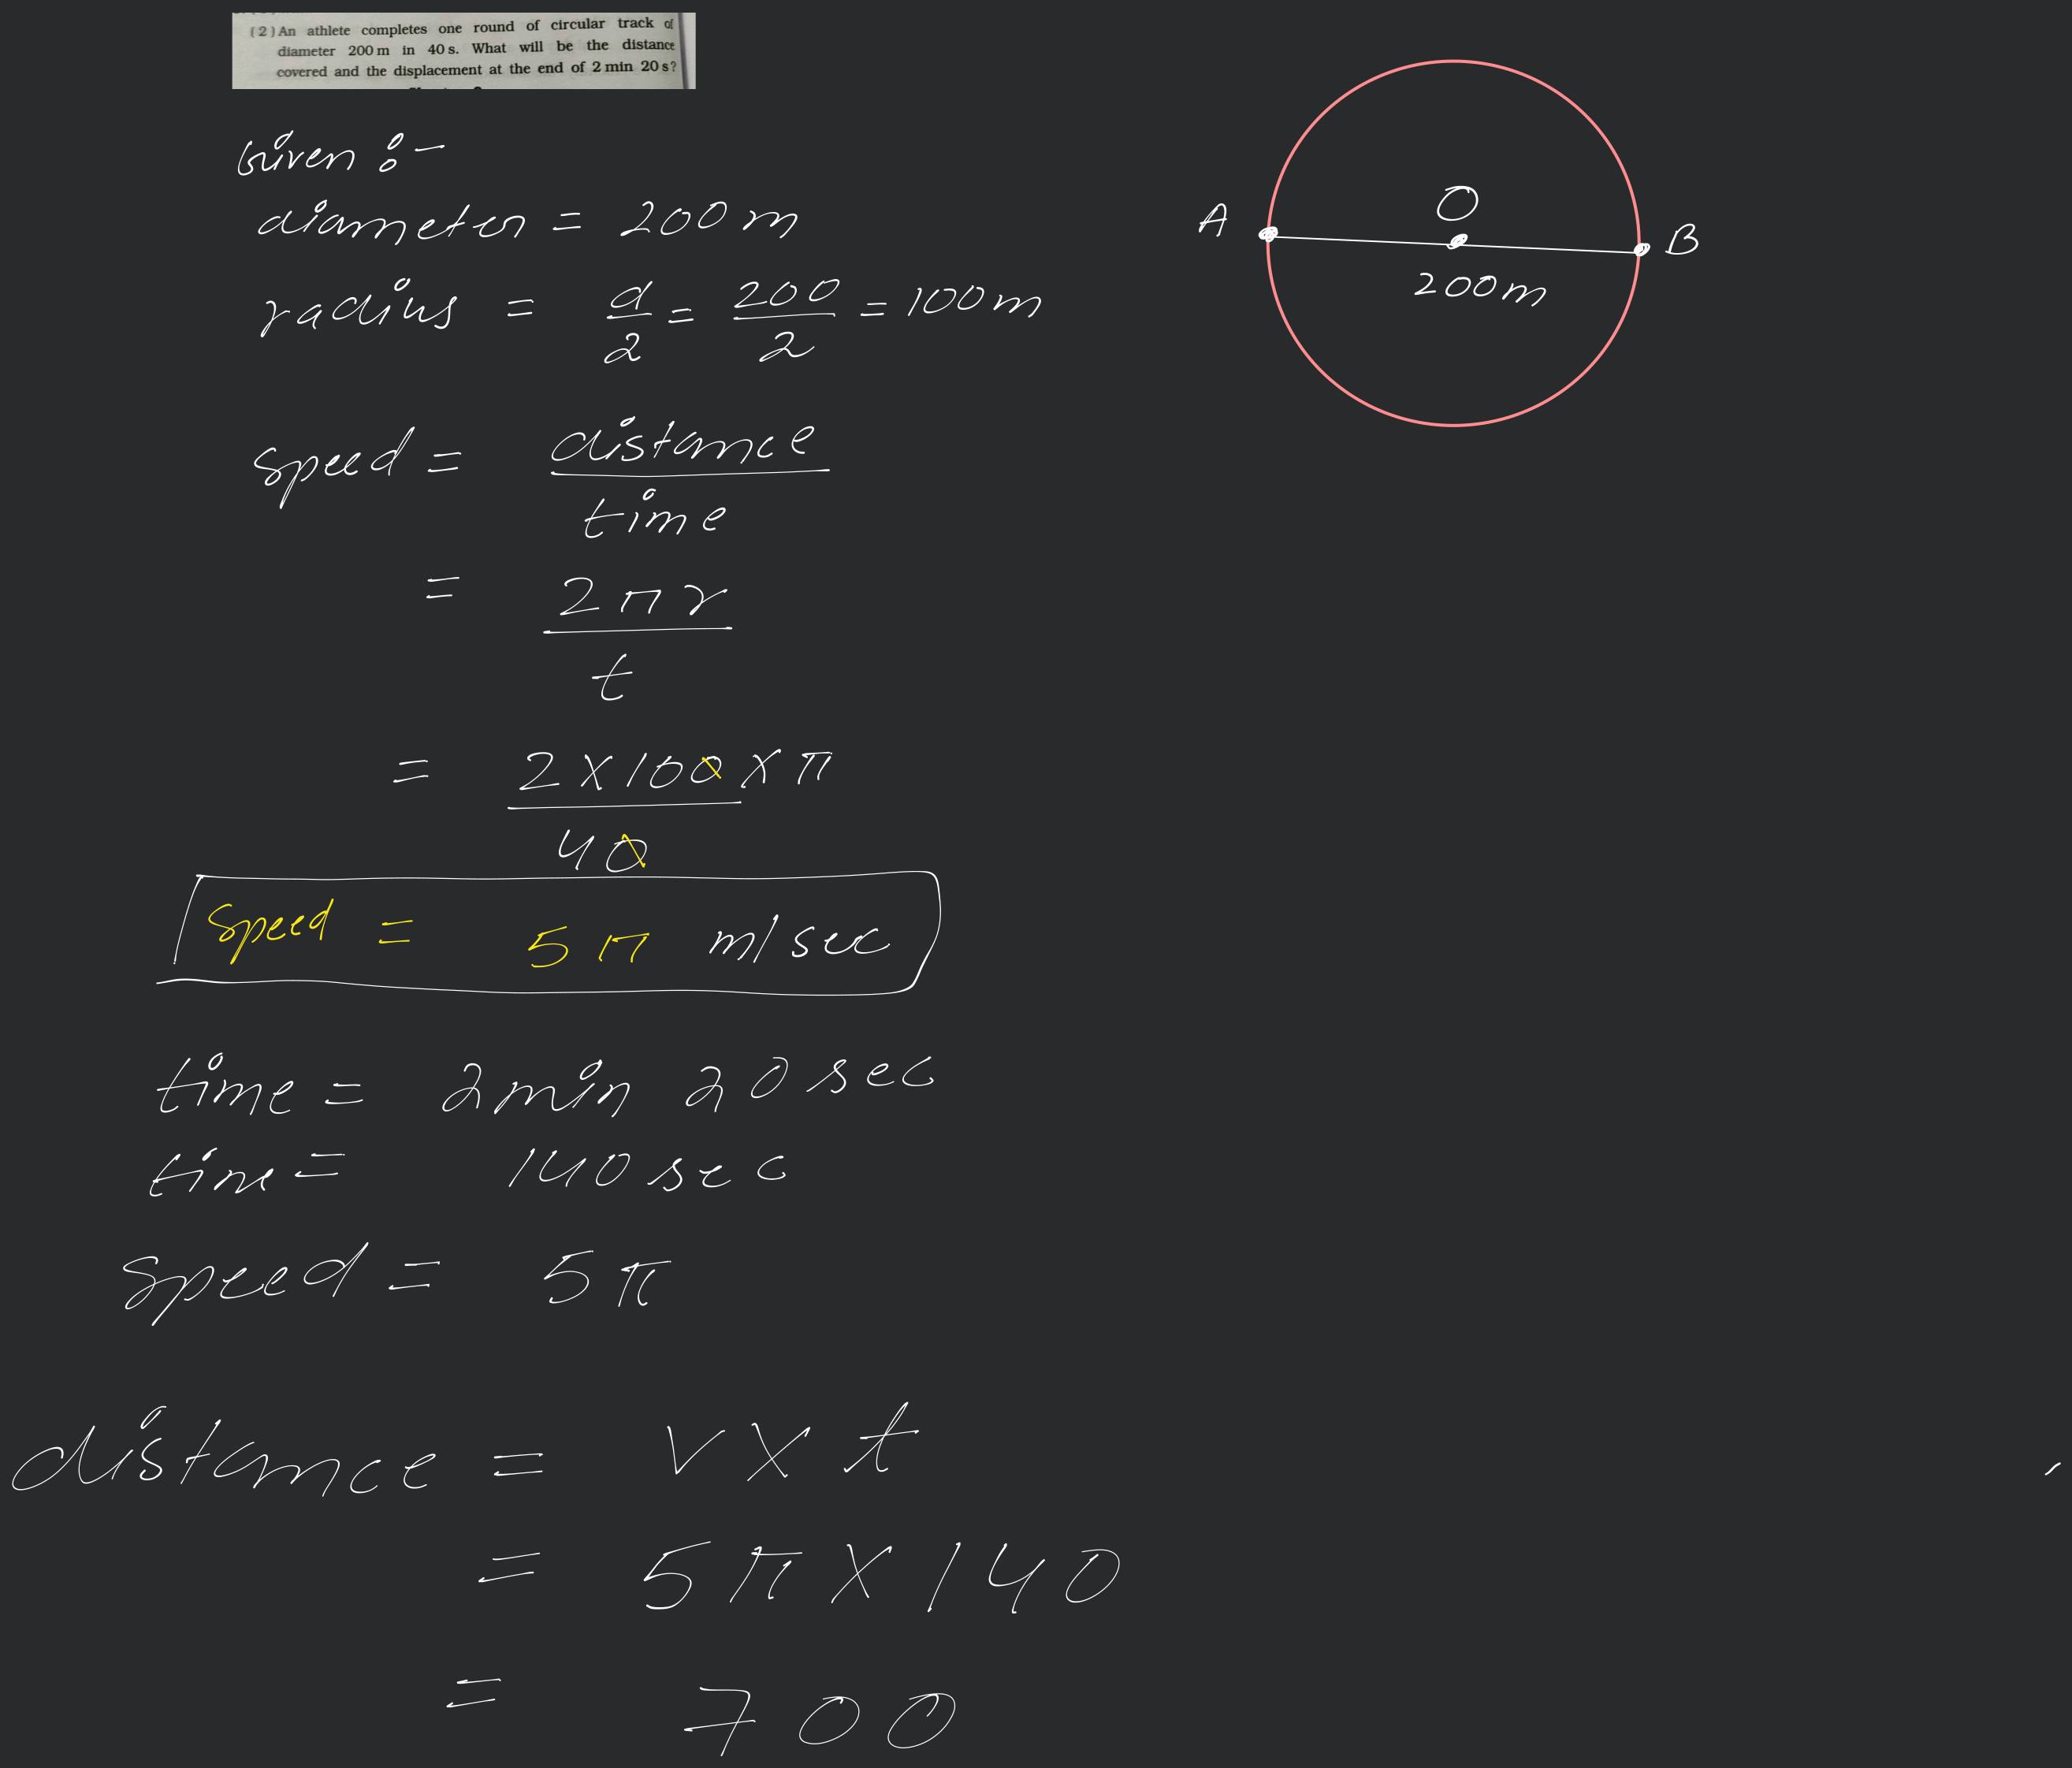 (2) An athlete completes one round of circular track of
diameter 200 m in 40 s. What will be the distance
covered and the displacement at the end of 2 min 20 s?
Given :-
diameter = 200 m
radius = d/2 = 200/2 = 100 m
speed = distance
time
= 2πr
t
= 2 × 100 × π
40
speed = 5π m/sec
time = 2 min 20 sec
time = 140 sec
speed = 5π
distance = v × t
= 5π × 140
= 700
A
O
B
200m